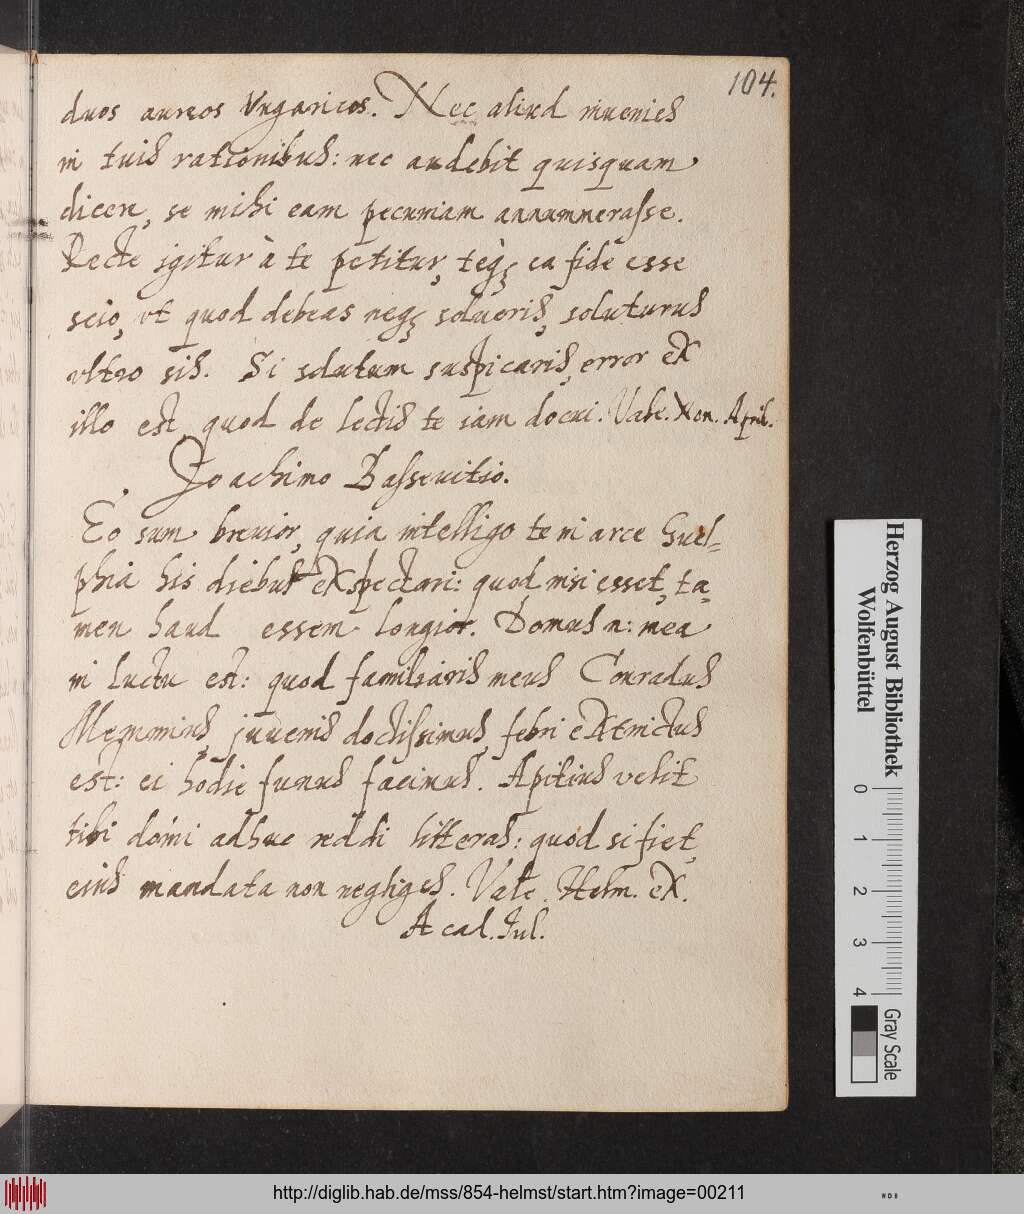 104.
duos aureos Vngaricos. Nec aliud invenies
in tuis rationibus: nec audebit quisquam
dicere, se mihi eam pecuniam annumerasse.
Recte igitur à te petitur, teq; ea fide esse
scio, vt quod debeas neq; solueris, soluturus
vltro sis. Si solutum suspicaris, error ex
illo est quod de lectis te iam docui. Vale. April.
Joachimo Bassevitio.
Eo sum brevior, quia intelligo te in arce Guel-
phia his diebus exspectari: quod nisi esset, ta-
men haud essem longior. Domus n: mea
in luctu est: quod familiaris meus Conradus
Memmius, juvenis doctissimus, febri extinctus
est: ei hodie funus facimus. Apitius velit
tibi domi adhuc reddi litteras: quod si fiet,
eius mandata non negliges. Vale. Helm. ex
Acad. Jul.
Herzog August Bibliothek
Wolfenbüttel
0 1 2 3 4
Gray Scale
http://diglib.hab.de/mss/854-helmst/start.htm?image=00211
WDB